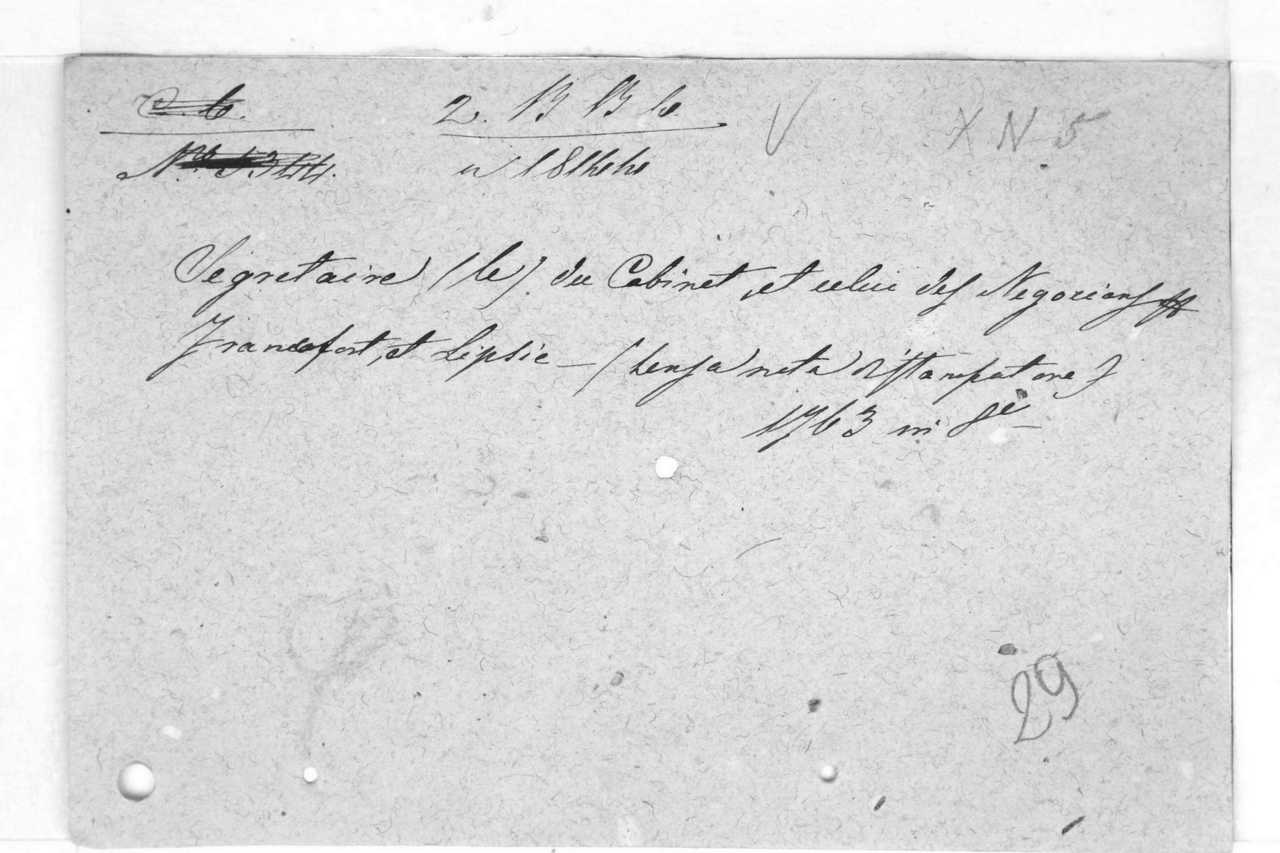 2. B B b. V X N 5
Segretaire (le) du Cabinet, et celui des Negocians
Francofort, et Lipsic – (senza nota di Stampatore)
1763 in 8º
29